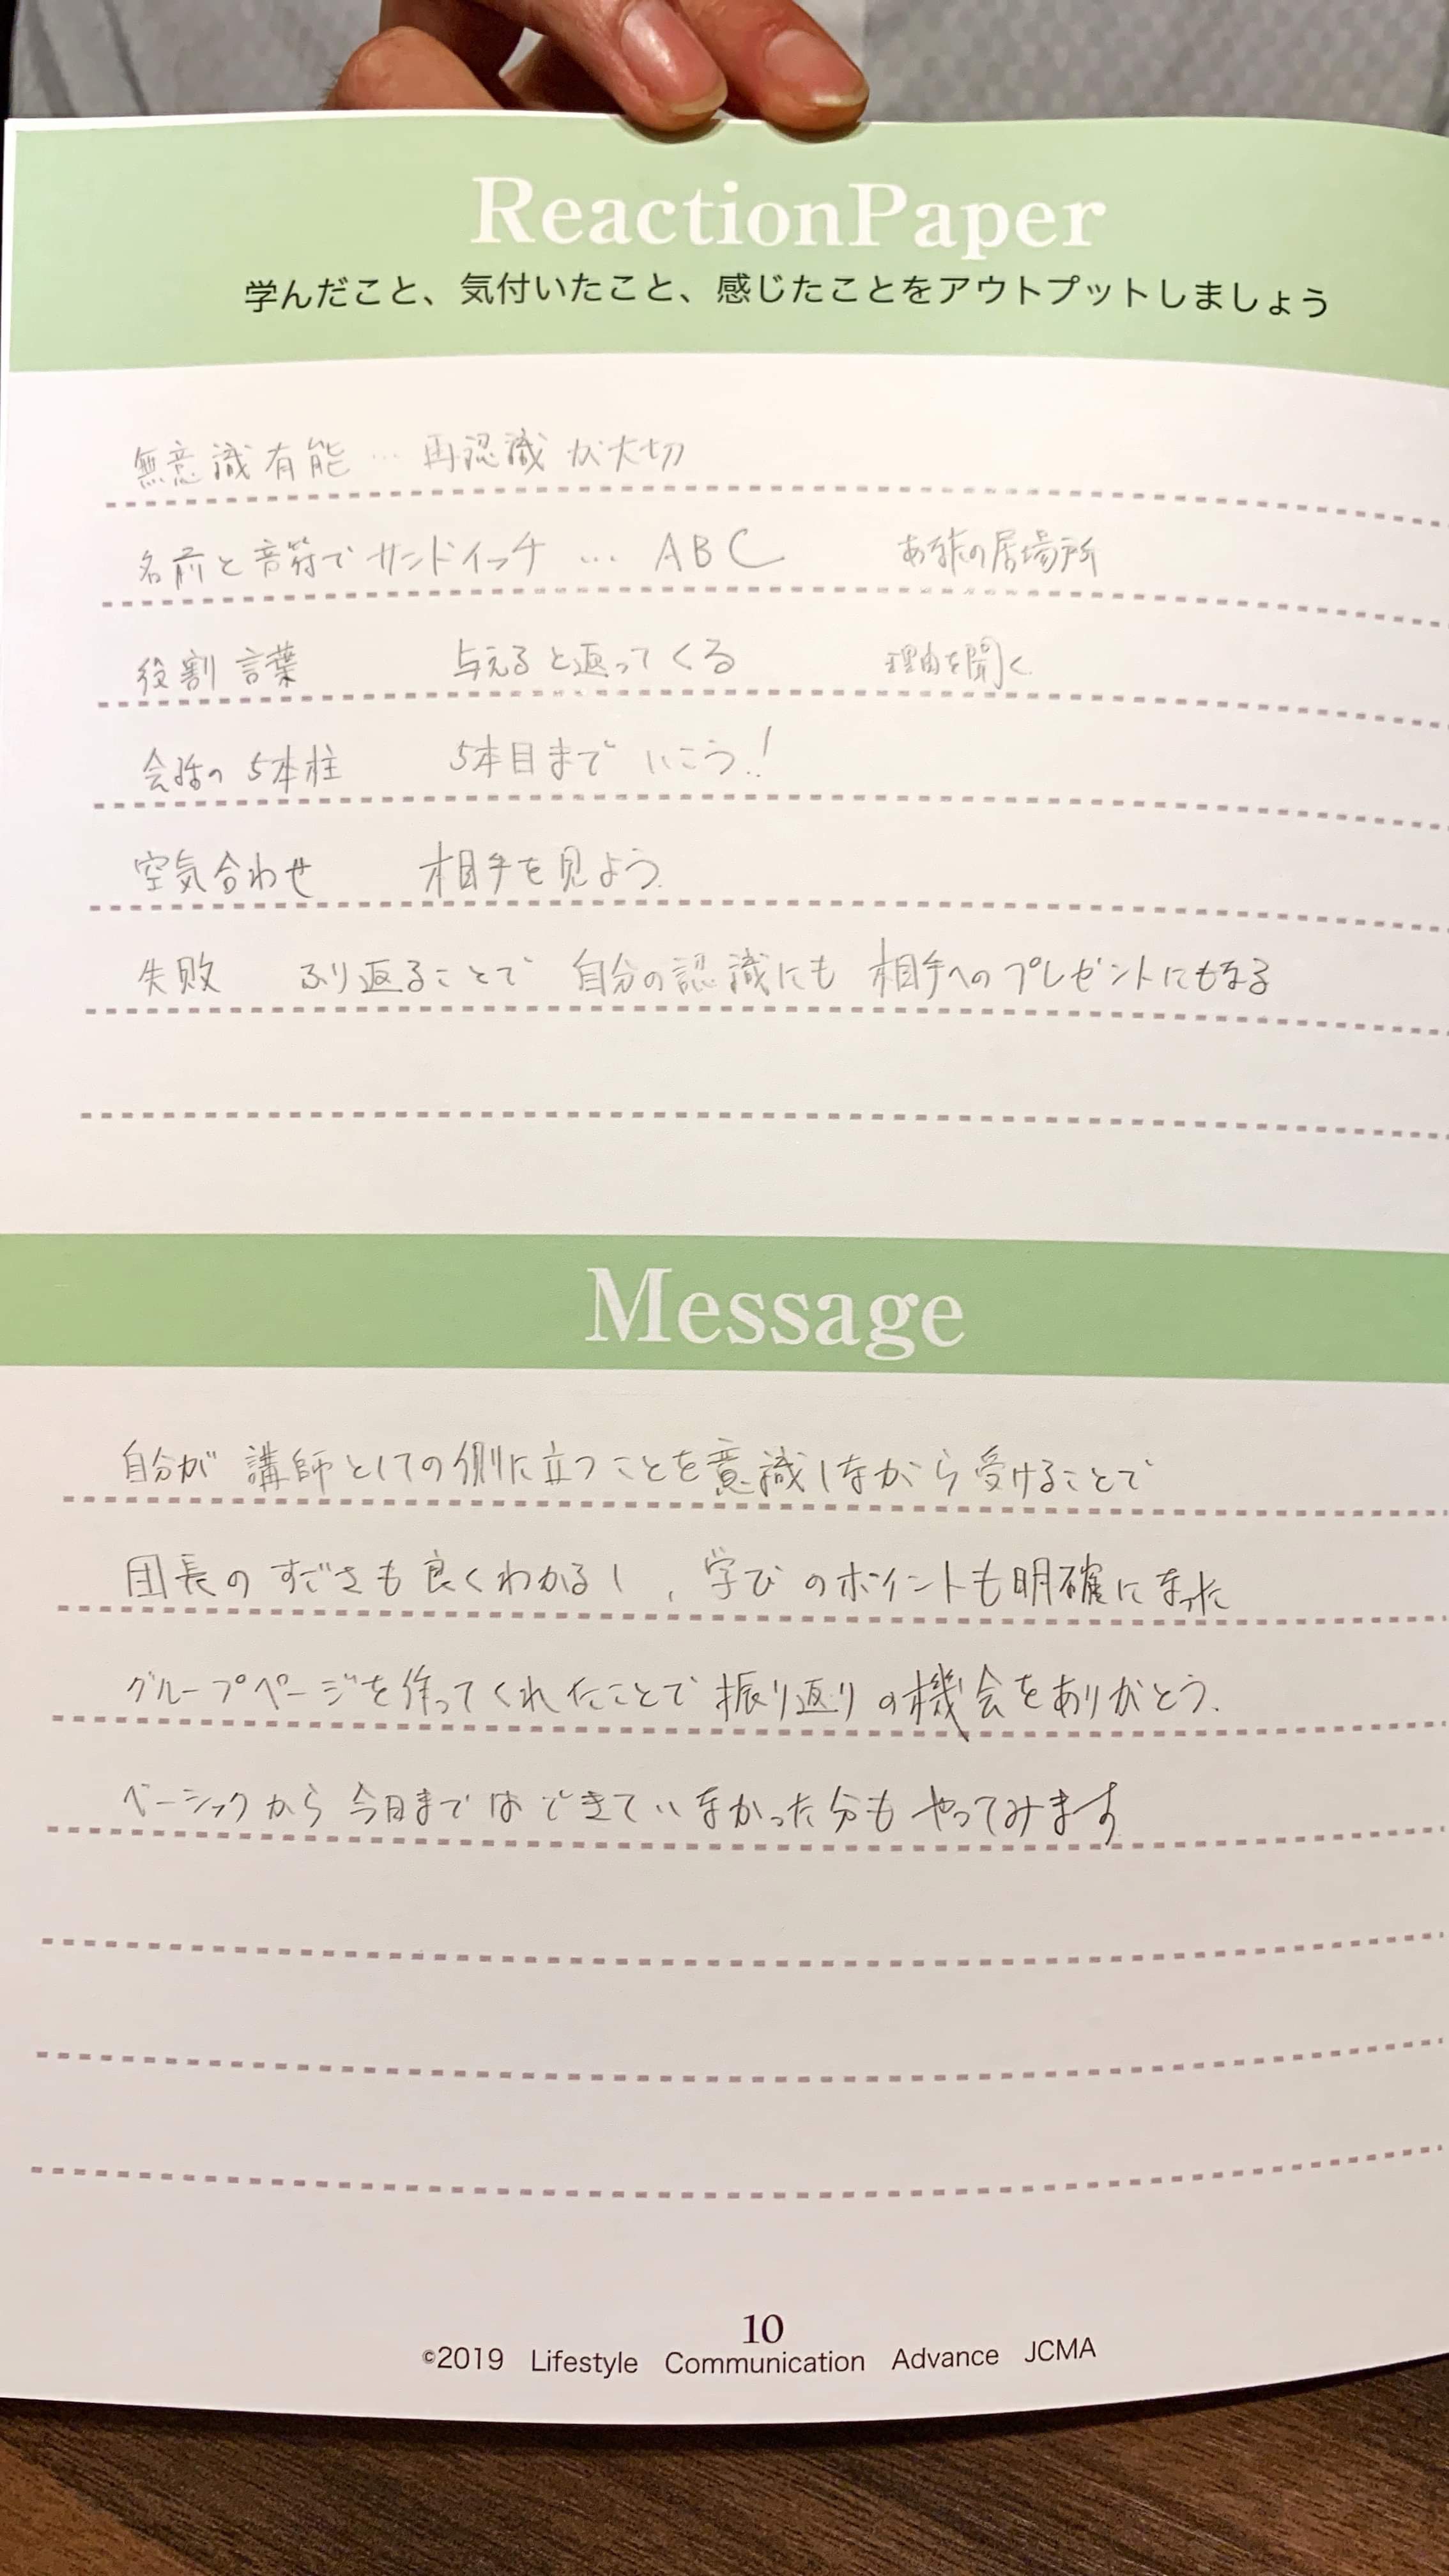 ReactionPaper
学んだこと、気付いたこと、感じたことをアウトプットしましょう
無意識有能 … 再認識が大切
名前と音符でサンドイッチ … ABC あなたの居場所
役割 言葉 与えると返ってくる 理由を聞く
会話の5本柱 5本目まで いこう!!
空気合わせ 相手を見よう
失敗 ふり返ることで 自分の認識にも 相手へのプレゼントにもなる
Message
自分が 講師としての側に立つことを意識しながら受けることで
団長の すごさも良くわかるし、学びのポイントも明確になった
グループページを作ってくれたことで振り返りの機会をありがとう.
ベーシックから今日まではできていなかった分もやってみます
10
©2019 Lifestyle Communication Advance JCMA